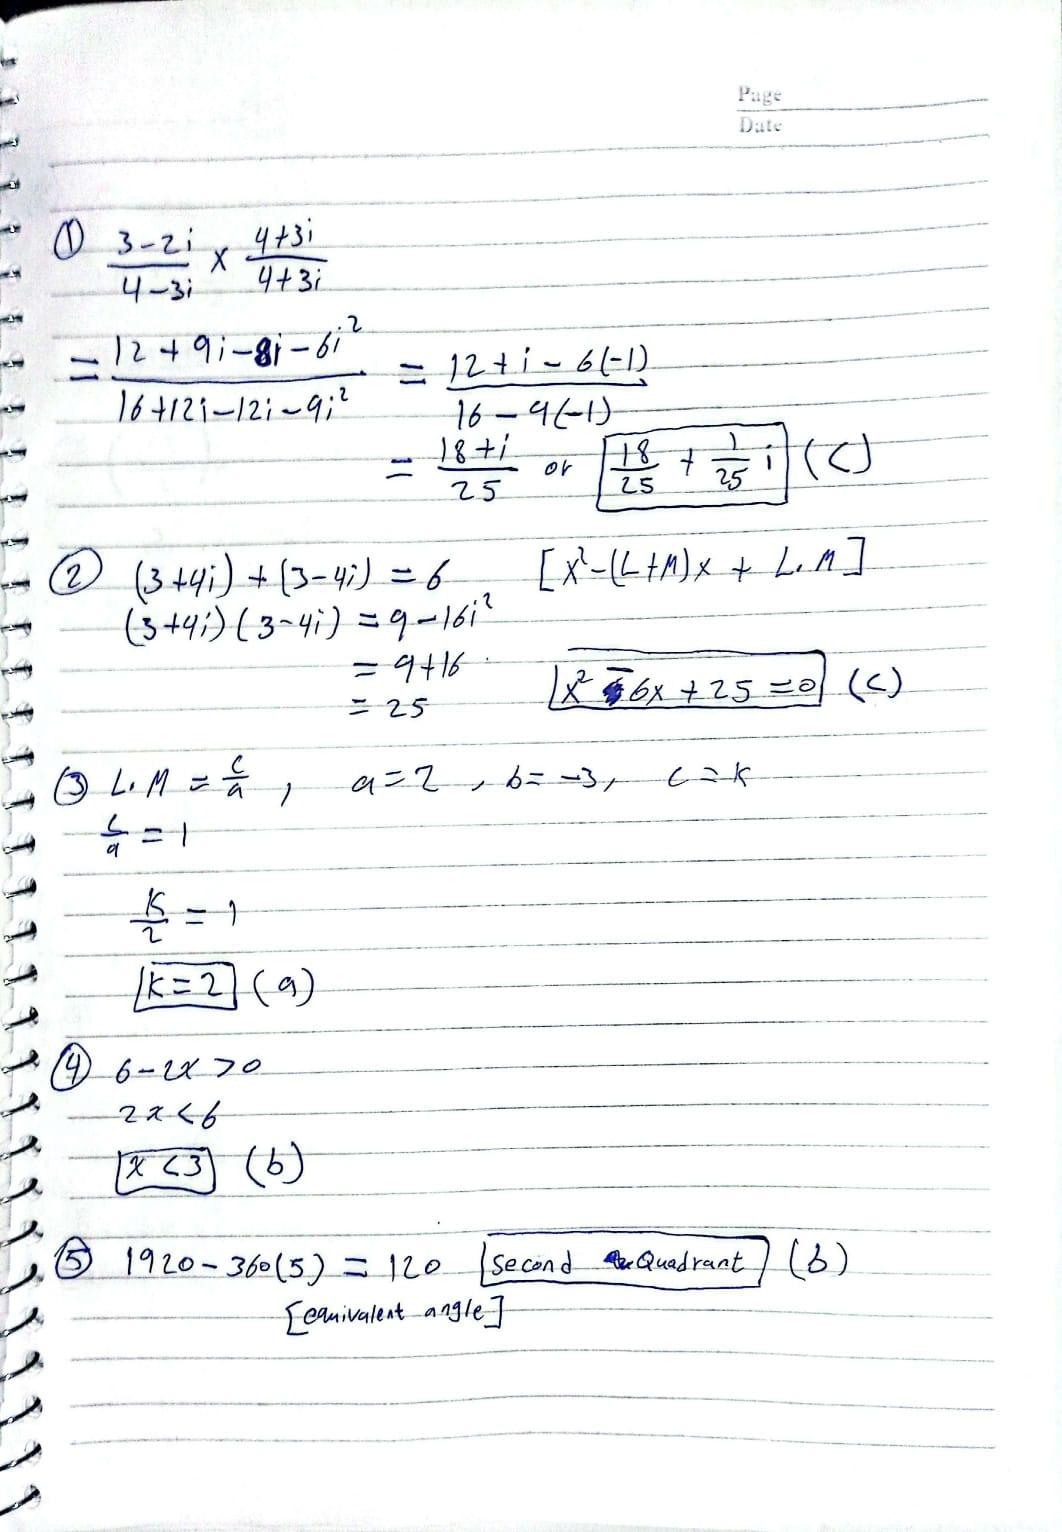 Page
Date
① (3-2i)/(4-3i) × (4+3i)/(4+3i)
= (12+9i-8i-6i²)/(16+12i-12i-9i²) = (12+i-6(-1))/(16-9(-1))
= (18+i)/25 or 18/25 + 1/25 i (C)
② (3+4i)+(3-4i) = 6 [x²-(L+M)x + L.M]
(3+4i)(3-4i) = 9-16i²
= 9+16
= 25 x² - 6x + 25 = 0 (C)
③ L.M = c/a , a=2 , b=-3, c=k
c/a = 1
k/2 = 1
k=2 (a)
④ 6-2x > 0
2x < 6
x < 3 (b)
⑤ 1920-360(5) = 120 Second Quadrant (b)
[equivalent angle]